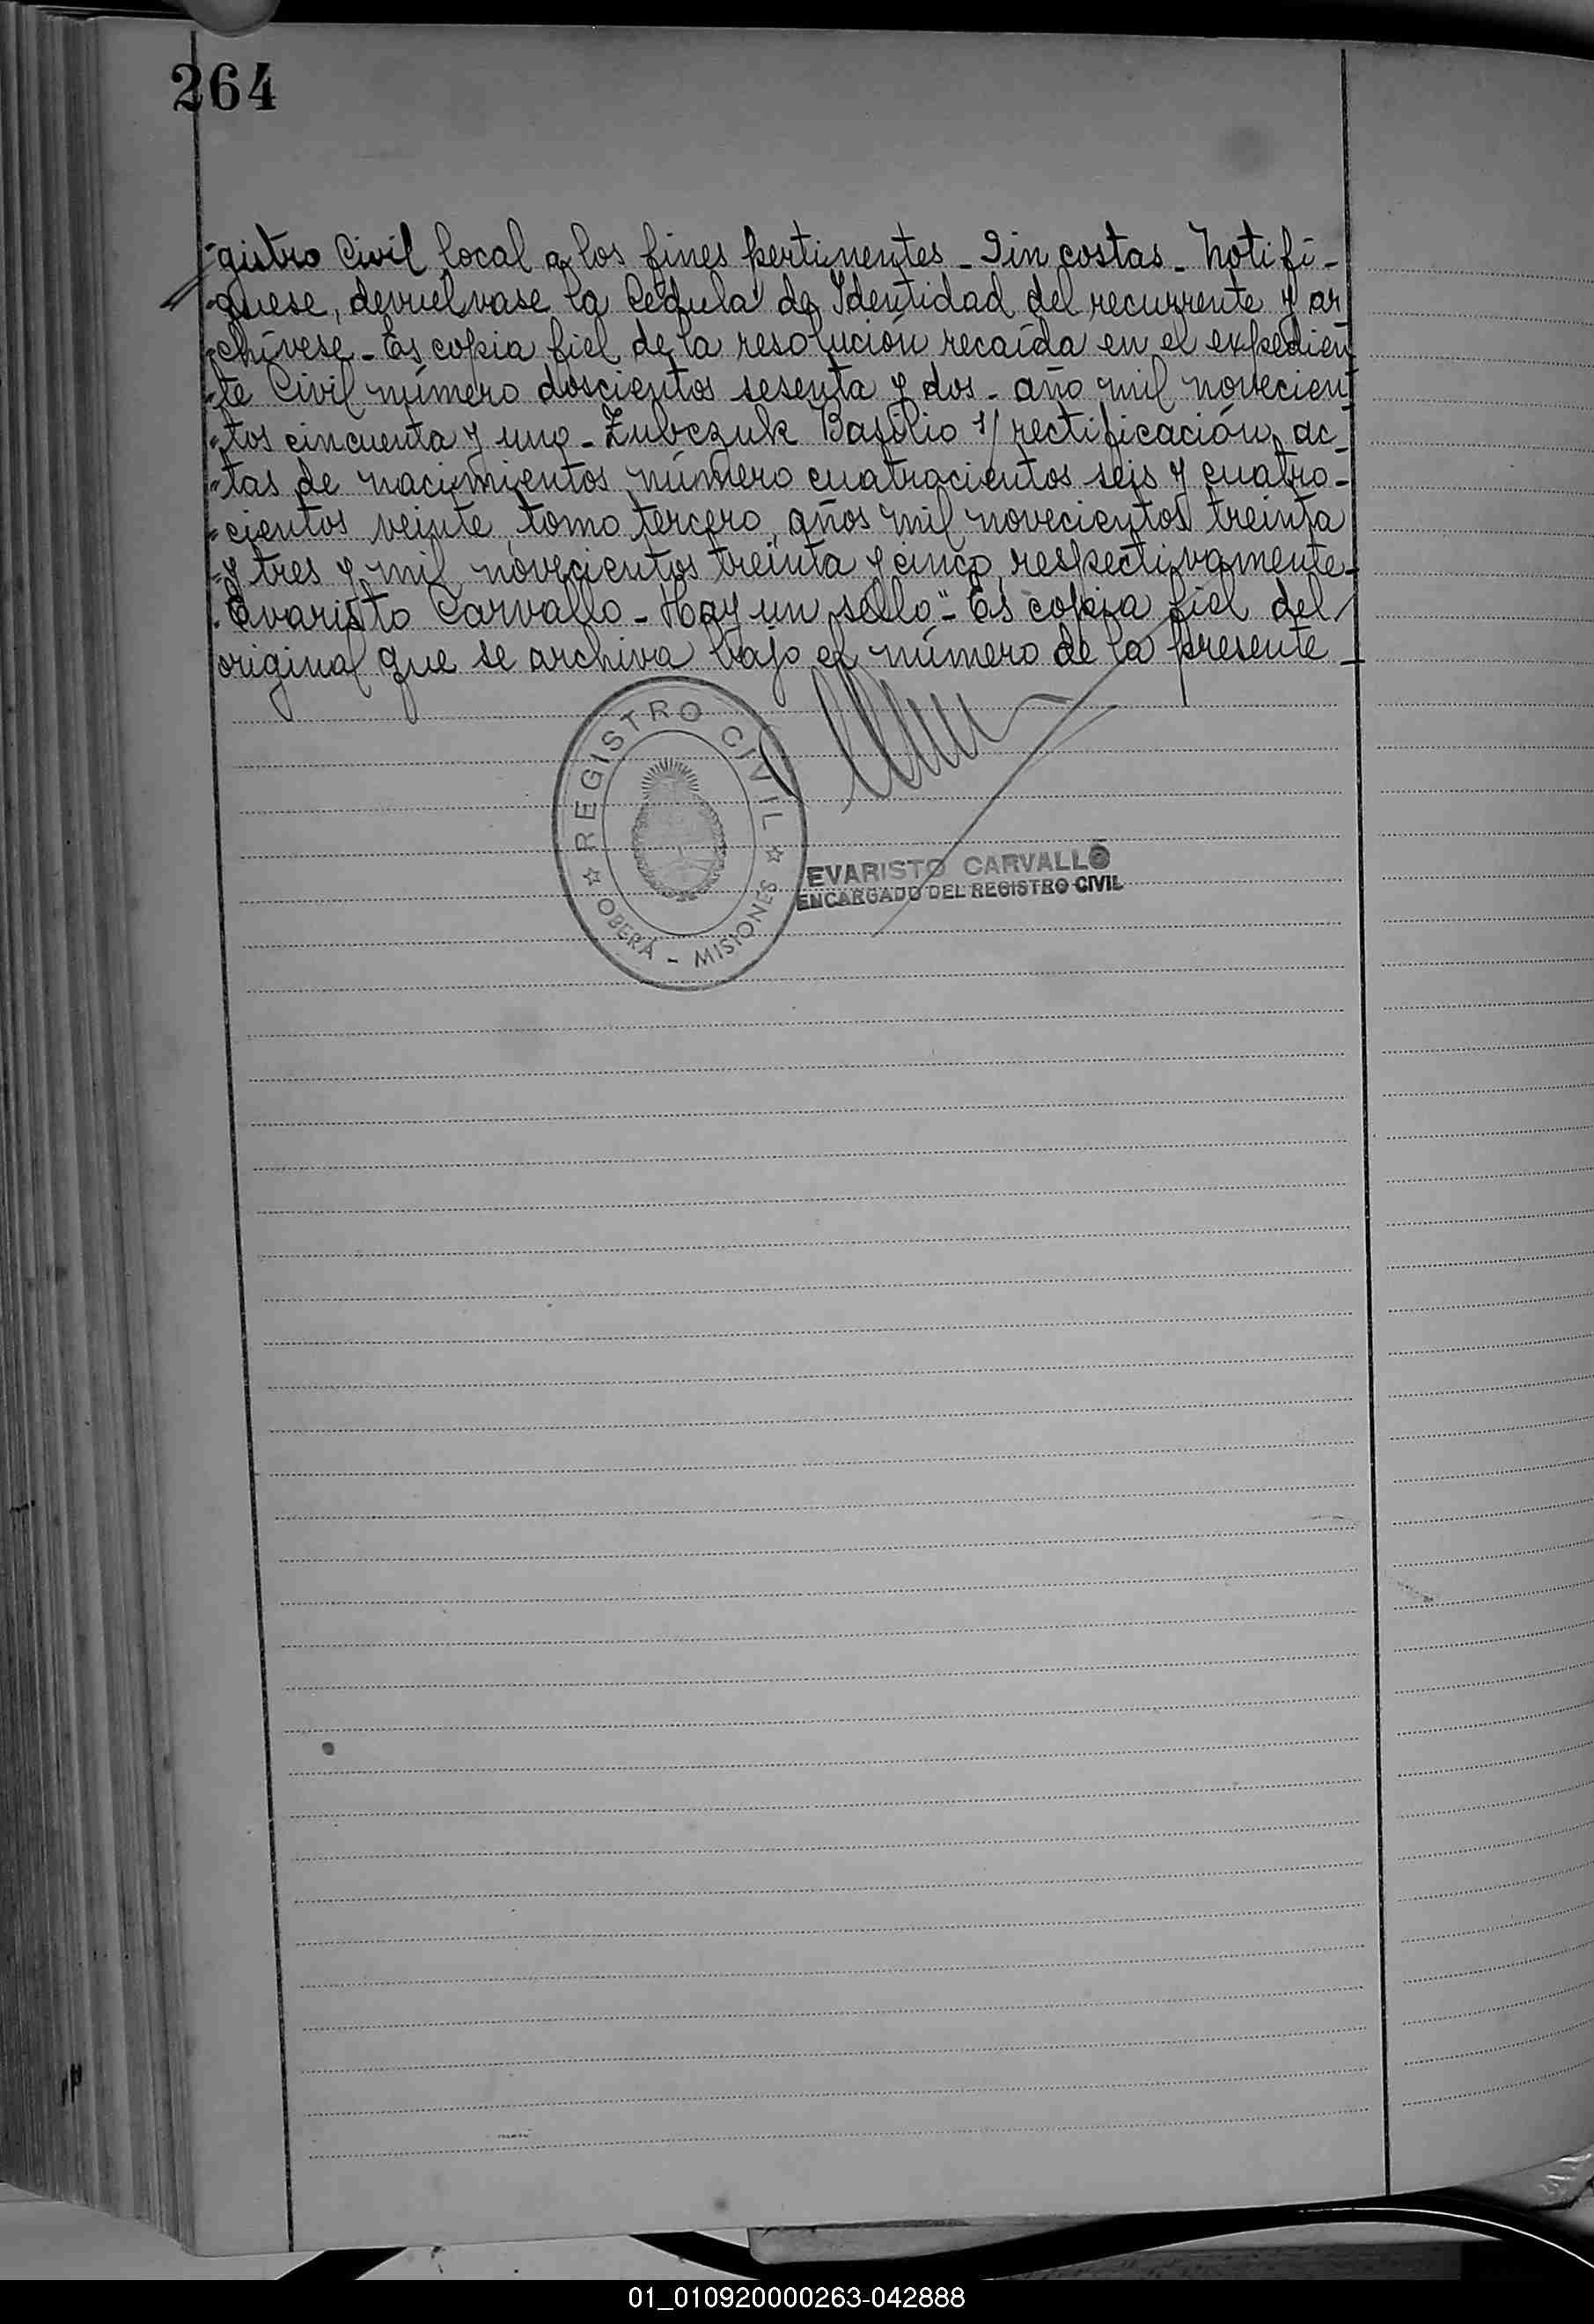 264
-gistro Civil local a los fines pertinentes - Sin costas - Notifí-
-quese, devuélvase la Cédula de Identidad del recurrente y ar
-chívese - Es copia fiel de la resolución recaída en el expedien
-te Civil número doscientos sesenta y dos - año mil novecien
-tos cincuenta y uno - Zubczuk Basilio s/ rectificación ac_
-tas de nacimientos número cuatrocientos seis y cuatro-
-cientos veinte, tomo tercero, años mil novecientos treinta
-y tres y mil novecientos treinta y cinco, respectivamente-
. Evaristo Carvallo - Hay un sello" - Es copia fiel del
original que se archiva bajo el número de la presente _
REGISTRO CIVIL
OBERÁ - MISIONES
EVARISTO CARVALLO
ENCARGADO DEL REGISTRO CIVIL
01_010920000263-042888